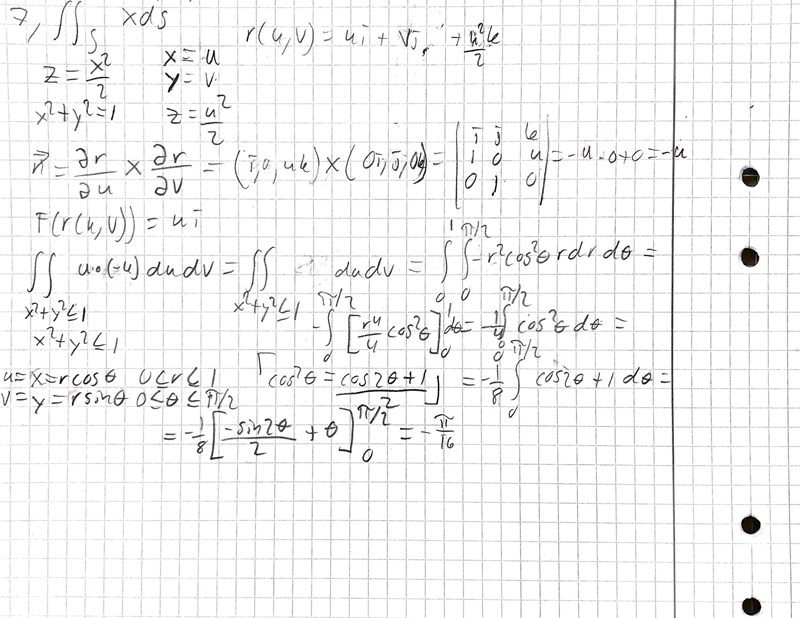 7, ∬_S x ds   r(u,v) = uī + vj̄ + u²/2 k
z = x²/2   x = u
y = v
x²+y²=1   z = u²/2
n̄ = ∂r/∂u × ∂r/∂v = (ī, 0, uk) × (0ī, j̄, 0k) = | ī j̄ k ; 1 0 u ; 0 1 0 | = -u - 0 + 0 = -u
F(r(u,v)) = uī
∬_{x²+y²≤1} u·(-u) du dv = ∬_{x²+y²≤1} du dv = ∫_0^1 ∫_0^{π/2} -r²cos²θ r dr dθ =
x²+y²≤1   -∫_0^{π/2} [r⁴/4 cos²θ]_0^1 dθ = -1/4 ∫_0^{π/2} cos²θ dθ =
u = x = r cosθ   0 ≤ r ≤ 1   [cos²θ = (cos2θ+1)/2]   = -1/8 ∫_0^{π/2} cos2θ + 1 dθ =
v = y = r sinθ   0 ≤ θ ≤ π/2
= -1/8 [-sin2θ/2 + θ]_0^{π/2} = -π/16